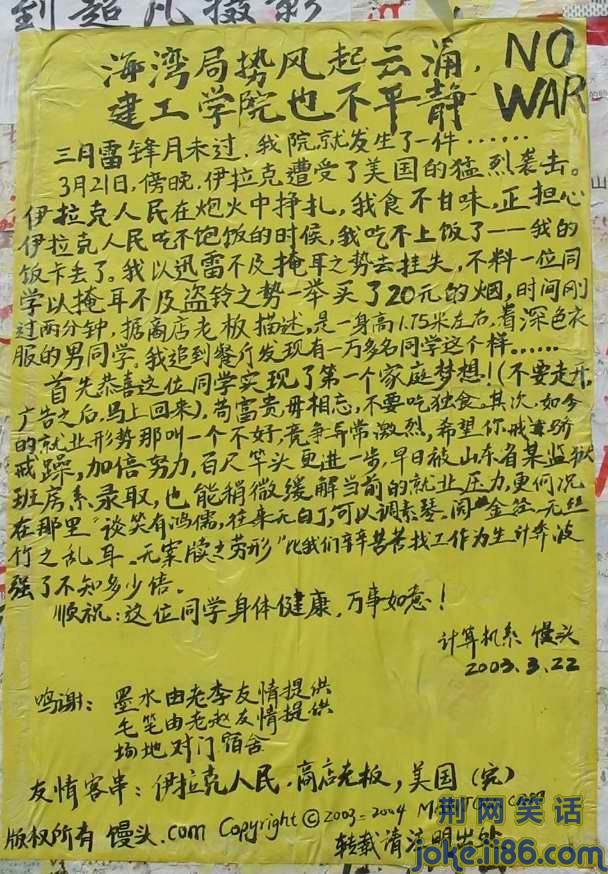 到超凡摄影
海湾局势风起云涌，
建工学院也不平静
NO
WAR
三月雷锋月未过，我院就发生了一件……
3月21日，傍晚，伊拉克遭受了美国的猛烈袭击。
伊拉克人民在炮火中挣扎，我食不甘味，正担心
伊拉克人民吃不饱饭的时候，我吃不上饭了——我的
饭卡丢了。我以迅雷不及掩耳之势去挂失，不料一位同
学以掩耳不及盗铃之势一举买了20元的烟，时间刚
过两分钟，据商店老板描述，是一身高1.75米左右，着深色衣
服的男同学，我追到餐厅发现有一万多名同学这个样……
首先恭喜这位同学实现了第一个家庭梦想！（不要走开，
广告之后，马上回来），苟富贵毋相忘，不要吃独食。其次，如今
的就业形势那叫一个不好，竞争异常激烈，希望你戒骄
戒躁，加倍努力，百尺竿头更进一步，早日被山东省某监狱
班房系录取，也能稍微缓解当前的就业压力，更何况
在那里“谈笑有鸿儒，往来无白丁，可以调素琴，阅金经。无丝
竹之乱耳，无案牍之劳形”比我们辛辛苦苦找工作为生计奔波
强了不知多少倍。
顺祝：这位同学身体健康，万事如意！
计算机系 馒头
2003.3.22
鸣谢：墨水由老李友情提供
毛笔由老赵友情提供
场地对门宿舍
友情客串：伊拉克人民，商店老板，美国（完）
版权所有 馒头.com Copyright ©2003-2004 .com
转载请注明出处
荆网笑话
joke.ji86.com